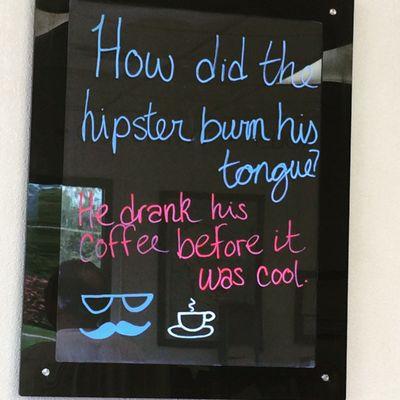 How did the
hipster burn his
tongue?
He drank his
coffee before it
was cool.